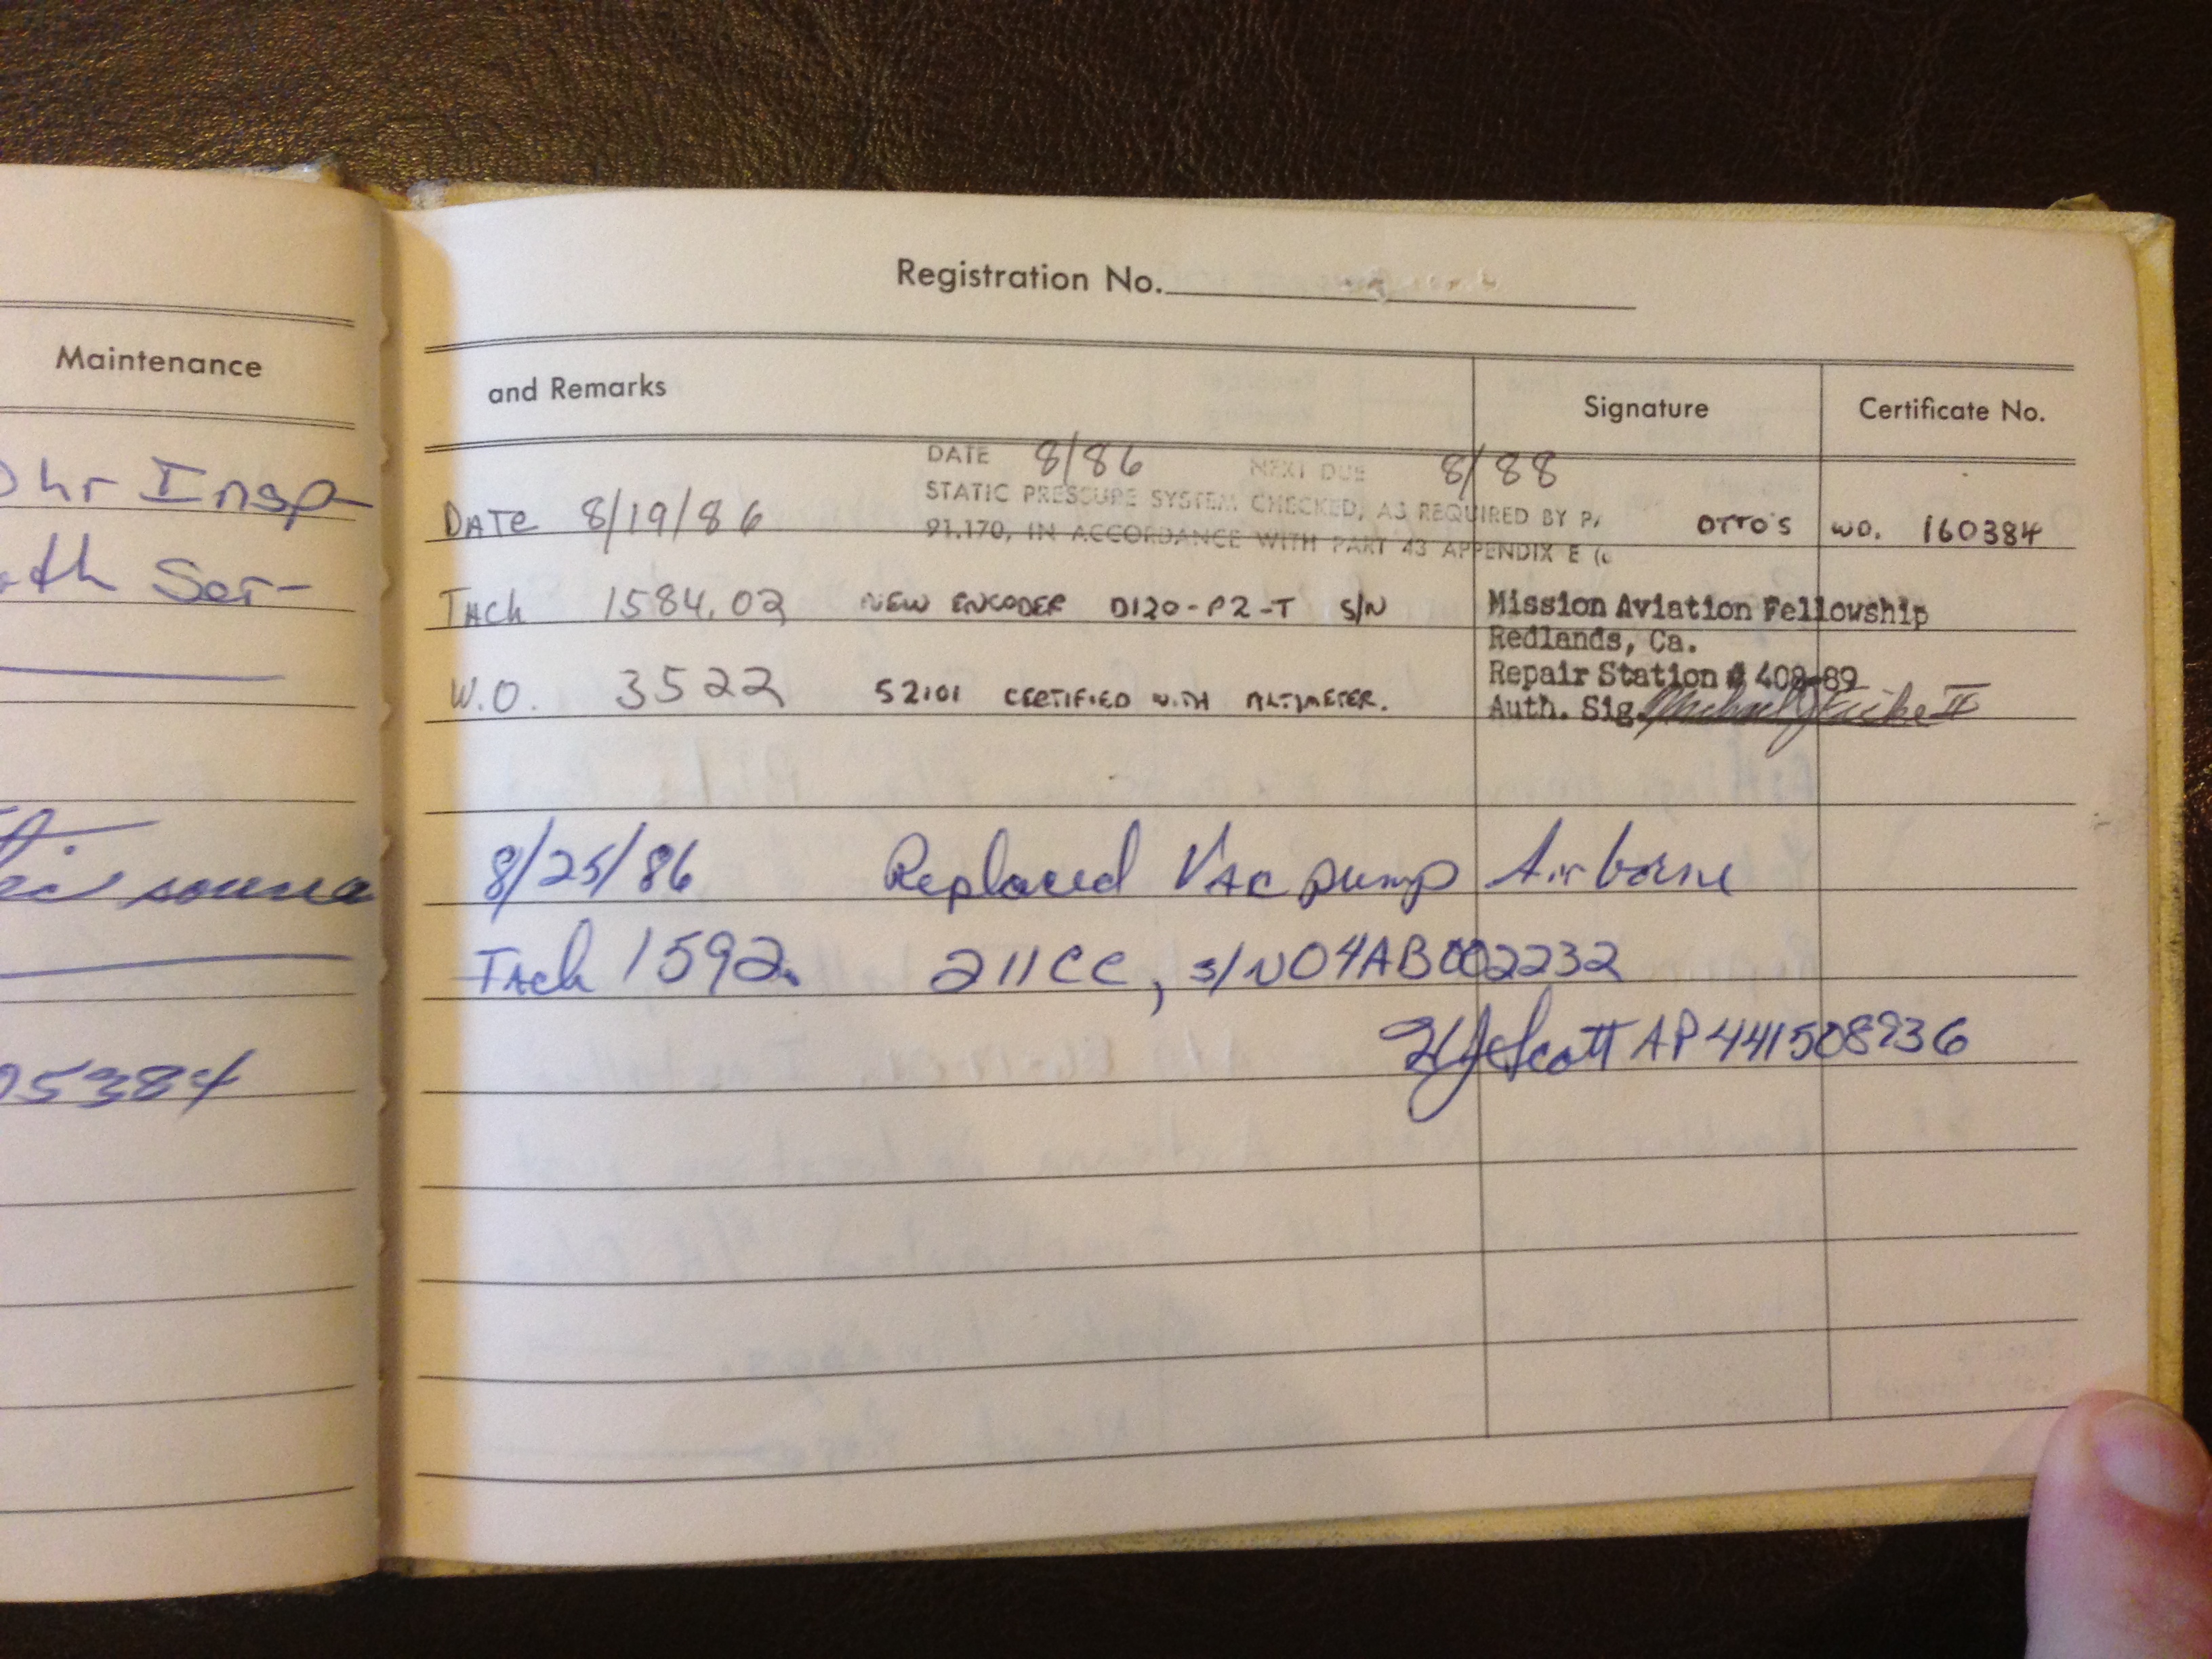 Maintenance
hr Insp-
ath Ser-
sound
05384
Registration No.
and Remarks
Signature
Certificate No.
DATE 8/86 NEXT DUE 8/88
STATIC PRESSURE SYSTEM CHECKED, AS REQUIRED BY
DATE 8/19/86
91.170, IN ACCORDANCE WITH PART 43 APPENDIX E
OTTO'S WO. 160384
TACH 1584.02 NEW ENCODER D120-P2-T S/N
Mission Aviation Fellowship
Redlands, Ca.
W.O. 3522 52101 CERTIFIED WITH ALTIMETER.
Repair Station # 408-89
Auth. Sig. Michael II
8/25/86 Replaced VAC pump Airborne
TAch 1592. 211CC, S/N04AB002232
Scott AP 441508936